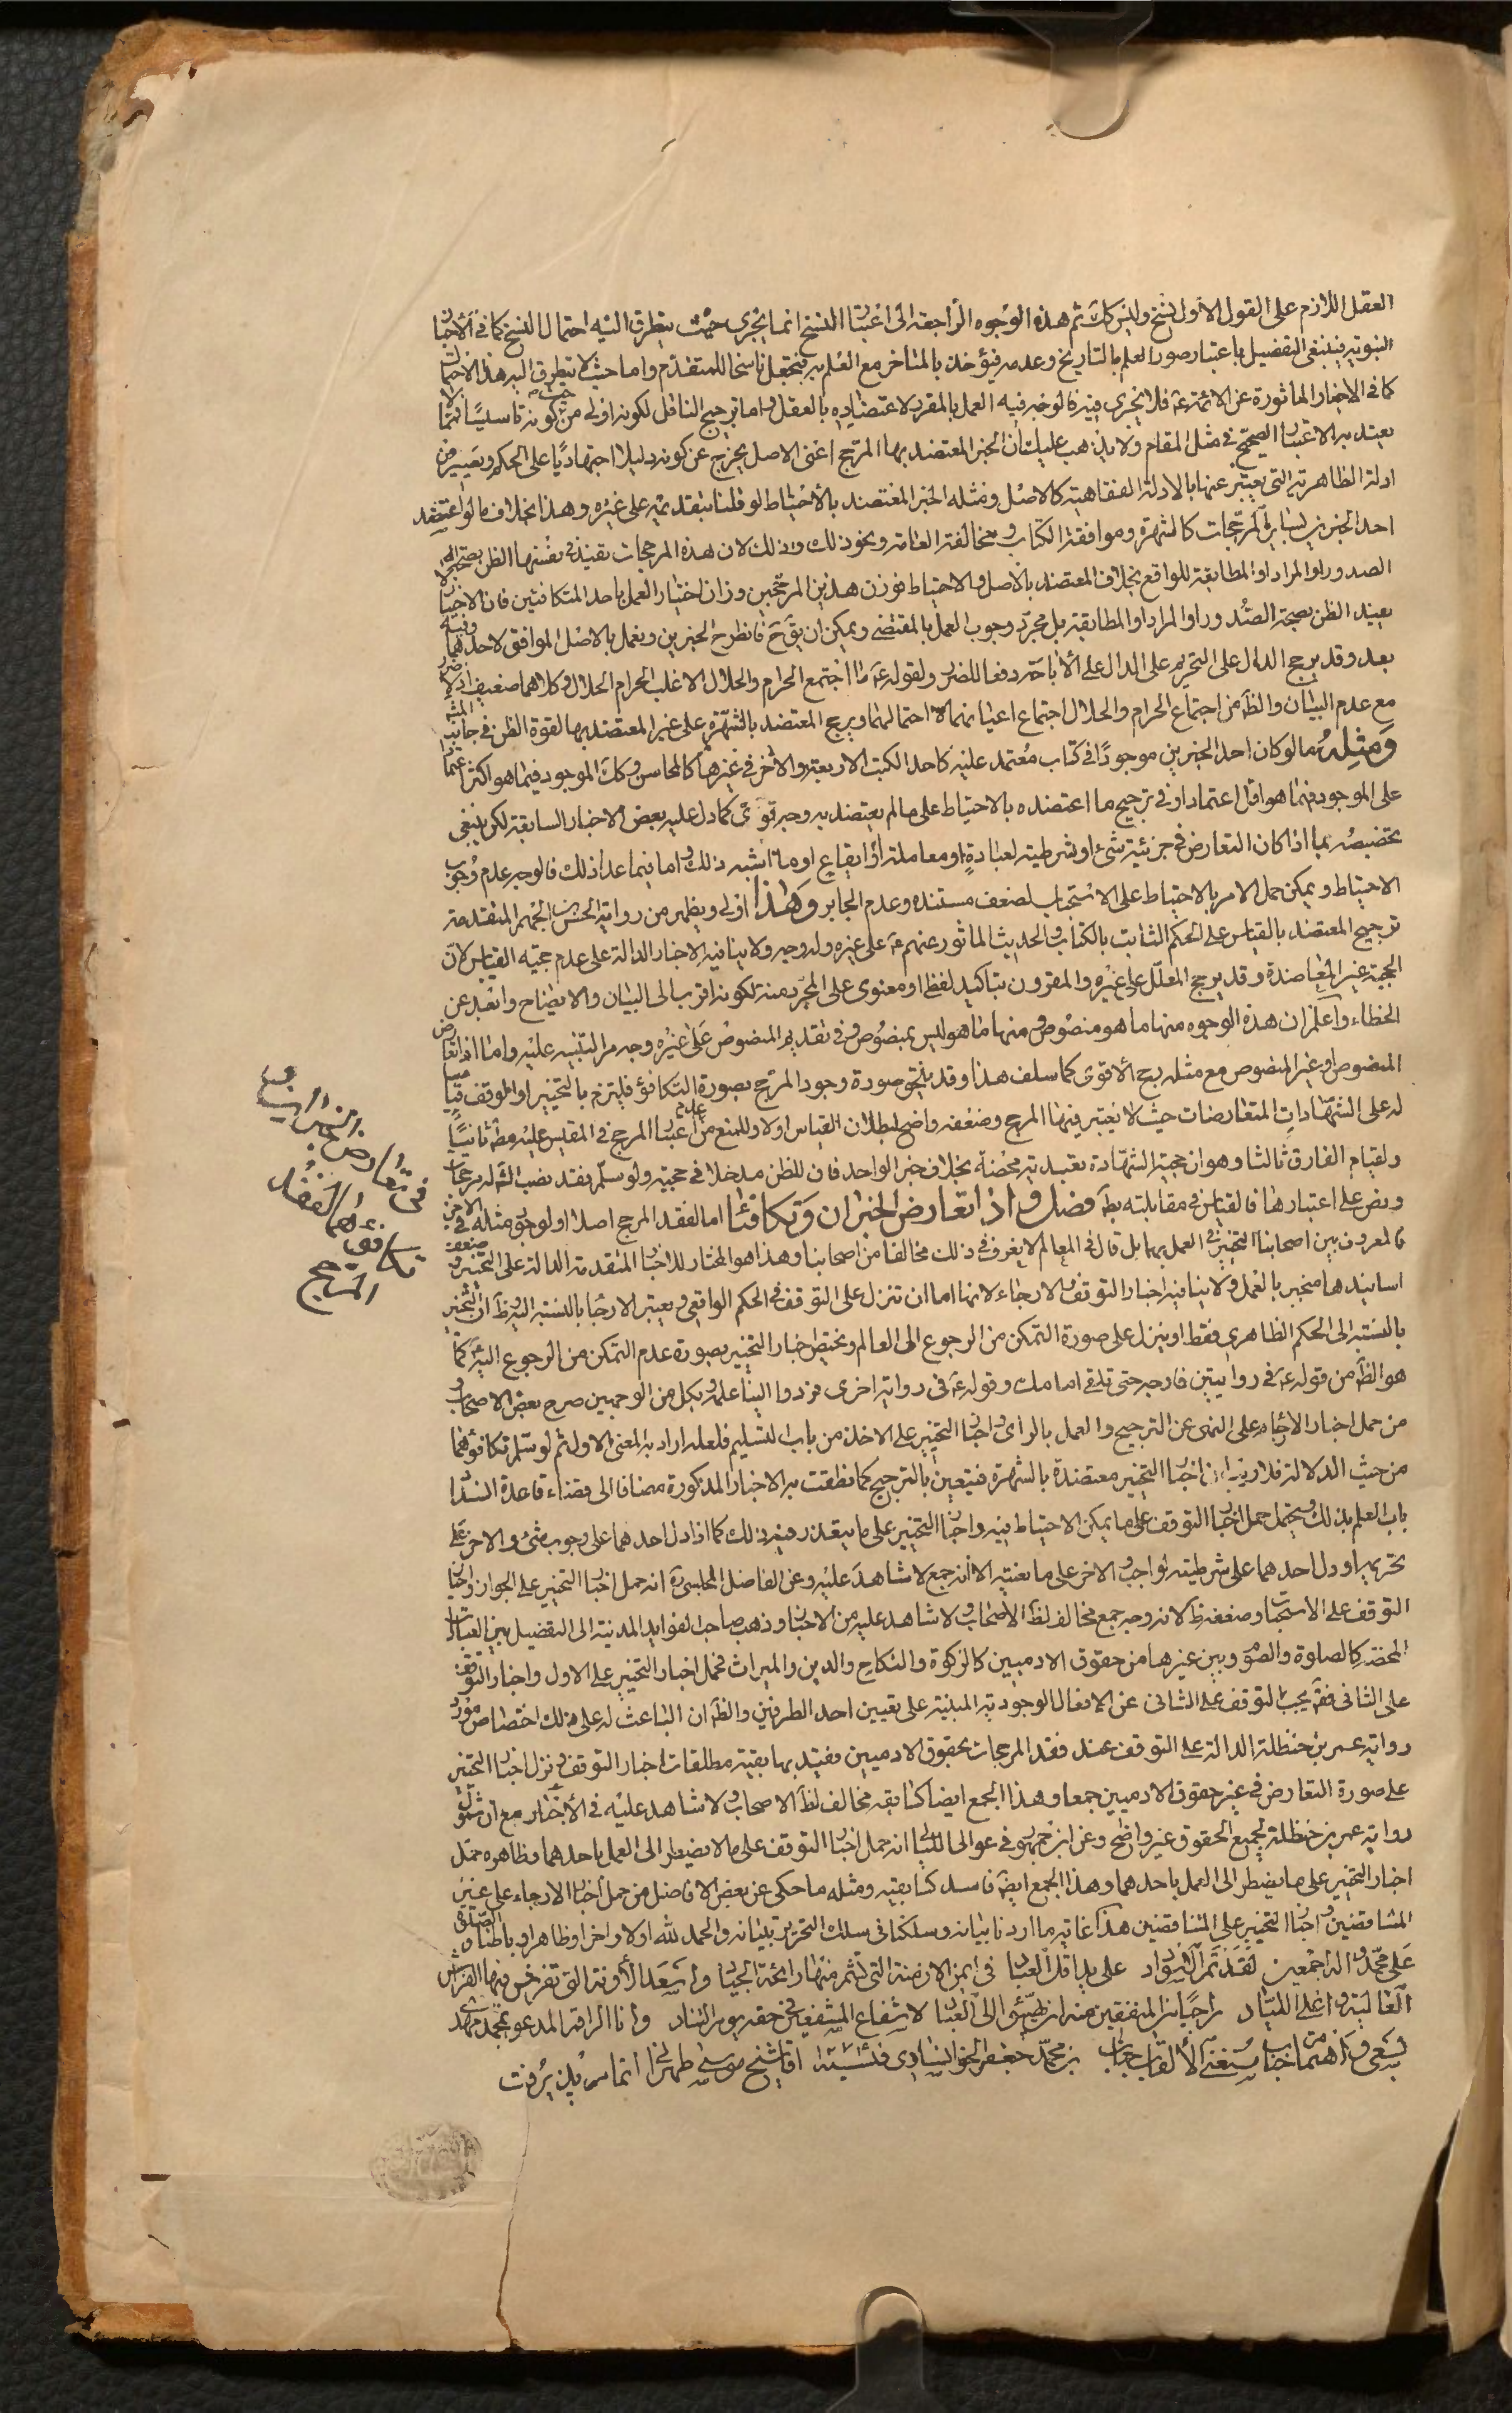 العقل اللازم على القول الاول نسخ وليس كك ثم هذه الوجوه الراجعة الى اعتبار النسخ انما يجرى حيث يتطرق اليه احتمال النسخ كما في الاخبار
النبوية فينبغى التفصيل باعتبار صور العلم بالتاريخ وعدمه فيؤخذ بالمتاخر مع العلم به فيجعل ناسخا للمتقدم واما حيث لا يتطرق اليه هذا الاحتمال
كما في الاخبار الماثورة عن الائمة ع فلا يجرى فيه فالوجه فيه العمل بالمقرر لاعتضاده بالعقل واما ترجيح الناقل لكونه اولى من حيث كونه تاسيسا فمما لا
يعتد به الاعتبار الصحيح في مثل المقام ولا يذهب عليك ان الخبر المعتضد بهذا المرجح اعنى الاصل يخرج عن كونه دليلا اجتهاديا على الحكم ويصير من
ادلة الظاهرية التى يعتبر عنها بالادلة الفقاهية كالاصل ومثله الخبر المعتضد بالاحتياط لو قلنا بتقديمه على غيره وهذا بخلاف ما لو اعتضد
احد الخبرين بساير المرجحات كالشهرة وموافقة الكتاب ومخالفة العامة ونحو ذلك وذلك لان هذه المرجحات تفيد في نفسها الظن بصحة
الصدور او المراد او المطابقة للواقع بخلاف المعتضد بالاصل والاحتياط فوزن هذين المرجحين وزان اختيار العمل باحد المتكافئين فان الاختيار لا
يفيد الظن بصحة الصدور او المراد او المطابقة بل مجرد وجوب العمل بالمقتضى ويمكن ان يق ح فانطرح الخبرين ونعمل بالاصل الموافق لاحدهما وفيه
بعد وقد يرجح الدال على التحريم على الدال على الاباحة دفعا للضرر ولقوله ع ما اجتمع الحرام والحلال الا غلب الحرام الحلال وكلاهما ضعيف اذ لا ضرر
مع عدم البيان والظ من اجتماع الحرام والحلال اجتماع اعيانهما لا احتمالهما ويرجح المعتضد بالشهرة على غير المعتضد بها لقوة الظن في جانب المشهور
ومثله ما لو كان احد الخبرين موجودا في كتاب معتمد عليه كاحد الكتب الاربعة والاخر في غيرها كالمحاسن وكك الموجود فيما هو اكثر اعتمادا
على الموجود فيما هو اقل اعتمادا وفي ترجيح ما اعتضده بالاحتياط على ما لم يعتضد به وجه قوى كما دل عليه بعض الاخبار السابقة لكن ينبغى
تخصيصه بما اذا كان التعارض في جزئية شئ او شرطيته لعبادة او معاملة او ايقاع او ما اشبه ذلك واما فيما عدا ذلك فالوجه عدم وجوب
الاحتياط ويمكن حمل الامر بالاحتياط على الاستحباب لضعف مستنده وعدم الجابر وهذا اولى ويظهر من رواية الحسن بن الجهم المتقدمة
ترجيح المعتضد بالقياس على الحكم الثابت بالكتاب والحديث الماثور عنهم ع على غيره وله وجه ولا ينافيه الاخبار الدالة على عدم حجية القياس لان
الحجية غير المعاضدة وقد يرجح المعلل على غيره والمقرون بتاكيد لفظى او معنوى على المجرد منه لكونه اقرب الى البيان والايضاح وابعد عن
الخطاء واعلم ان هذه الوجوه منها ما هو منصوص ومنها ما هو ليس بمنصوص وفي تقديم المنصوص على غيره وجه مر التنبيه عليه واما اذا تعارض
المنصوص او غير المنصوص مع مثله رجح الاقوى كما سلف هذا وقد يلحق صورة وجود المرجح بصورة التكافؤ فيلتزم بالتخيير او الوقف قياسا
له على الشهادات المتعارضات حيث لا يعتبر فيها المرجح وضعفه واضح لبطلان القياس اولا وللمنع من عدم اعتبار المرجح في المقيس عليه مط ثانيا
ولقيام الفارق ثالثا وهو ان حجية الشهادة تعبدية محضة بخلاف خبر الواحد فان للظن مدخلا في حجيته ولو سلم فقد نصب الش له مرجحات
ونص على اعتبارها فالقياس في مقابلته بط فصل واذا تعارض الخبران وتكافئا اما لفقد المرجح اصلا او لوجود مثله في الاخر
فالمعروف بين اصحابنا التخيير في العمل بهما بل قال في المعالم لا يعرف في ذلك مخالفا من اصحابنا وهذا هو المختار للاخبار المتقدمة الدالة على التخيير وضعف
اسانيدها منجبر بالعمل ولا ينافيه اخبار التوقف والارجاء لانها اما ان تنزل على التوقف في الحكم الواقعى ويعتبر الارجاء بالنسبة اليه وظ ان التخيير
بالنسبة الى الحكم الظاهرى فقط او ينزل على صورة التمكن من الرجوع الى العالم ويختص اخبار التخيير بصورة عدم التمكن من الرجوع اليه كما
هو الظ من قوله ع في روايتين فارجه حتى تلقى امامك وقوله ع في رواية اخرى فردوا الينا علمه وبكل من الوجهين صرح بعض الاصحاب
من حمل اخبار الارجاء على النهى عن الترجيح والعمل بالراى واخبار التخيير على الاخذ من باب التسليم فلعله اراد به المعنى الاول ثم لو سلم تكافؤهما
من حيث الدلالة فلا ريب ان اخبار التخيير معتضدة بالشهرة فتعين بالترجيح كما نطقت به الاخبار المذكورة مضافا الى قضاء قاعدة انسداد
باب العلم بذلك ويحتمل حمل اخبار التوقف على ما يمكن الاحتياط فيه واخبار التخيير على ما يتعذر فيه ذلك كما اذا دل احدهما على وجوب شئ والاخر على
تحريمه او دل احدهما على شرطيته لواجب والاخر على مانعيته الا انه جمع لا شاهد عليه وعن الفاضل المجلسى ره انه حمل اخبار التخيير على الجواز واخبار
التوقف على الاستحباب وضعفه ظ لانه وجه جمع مخالف لظ الاصحاب ولا شاهد عليه من الاخبار وذهب صاحب الفوايد المدنية الى التفصيل بين العبادات
المحضة كالصلوة والصوم وبين غيرها من حقوق الادميين كالزكوة والنكاح والدين والميراث فحمل اخبار التخيير على الاول واخبار التوقف
على الثانى فقال يجب التوقف على الثانى عن الافعال الوجودية المبنية على تعيين احد الطرفين والظ ان الباعث له على ذلك اختصاص مورد
رواية عمر بن حنظلة الدالة على التوقف عند فقد المرجحات بحقوق الادميين فقيد بها بقية مطلقات اخبار التوقف ونزل اخبار التخيير
على صورة التعارض في غير حقوق الادميين جمعا وهذا الجمع ايضا كسابقه مخالف لظ الاصحاب ولا شاهد عليه في الاخبار مع ان شمول
رواية عمر بن حنظلة لجميع الحقوق غير واضح وعن ابن جمهور في عوالى اللئالى انه حمل اخبار التوقف على ما لا يضطر الى العمل باحدهما وظاهره حمل
اخبار التخيير على ما يضطر الى العمل باحدهما وهذا الجمع ايض فاسد كسابقيه ومثله ما حكى عن بعض الافاضل من حمل اخبار الارجاء على غير
المتناقضين واخبار التخيير على المتناقضين هذا غاية ما اردنا بيانه وسلكنا في سلك التحرير تبيانه والحمد لله اولا واخرا وظاهرا وباطنا والصلوة
على محمد واله اجمعين لقد تم السواد على يد اقل العباد في ايمن الازمنة التى تشم منها رائحة الجياد واسعد الاونة التى
الغالية واغلى اللباد راجيا من المنتفعين منه ان الى العباد لاشفاع المشفعين في حقه يوم التناد وانا الراقم المدعو بمحمد مهدى
بن محمد جعفر الخوانسارى
بسعى واهتمام جناب مستغنى الالقاب جناب اقا شيخ موسى طهرانى اتمام پذيرفت
في تعارض الخبرين و
تكافؤهما لفقد
المرجح